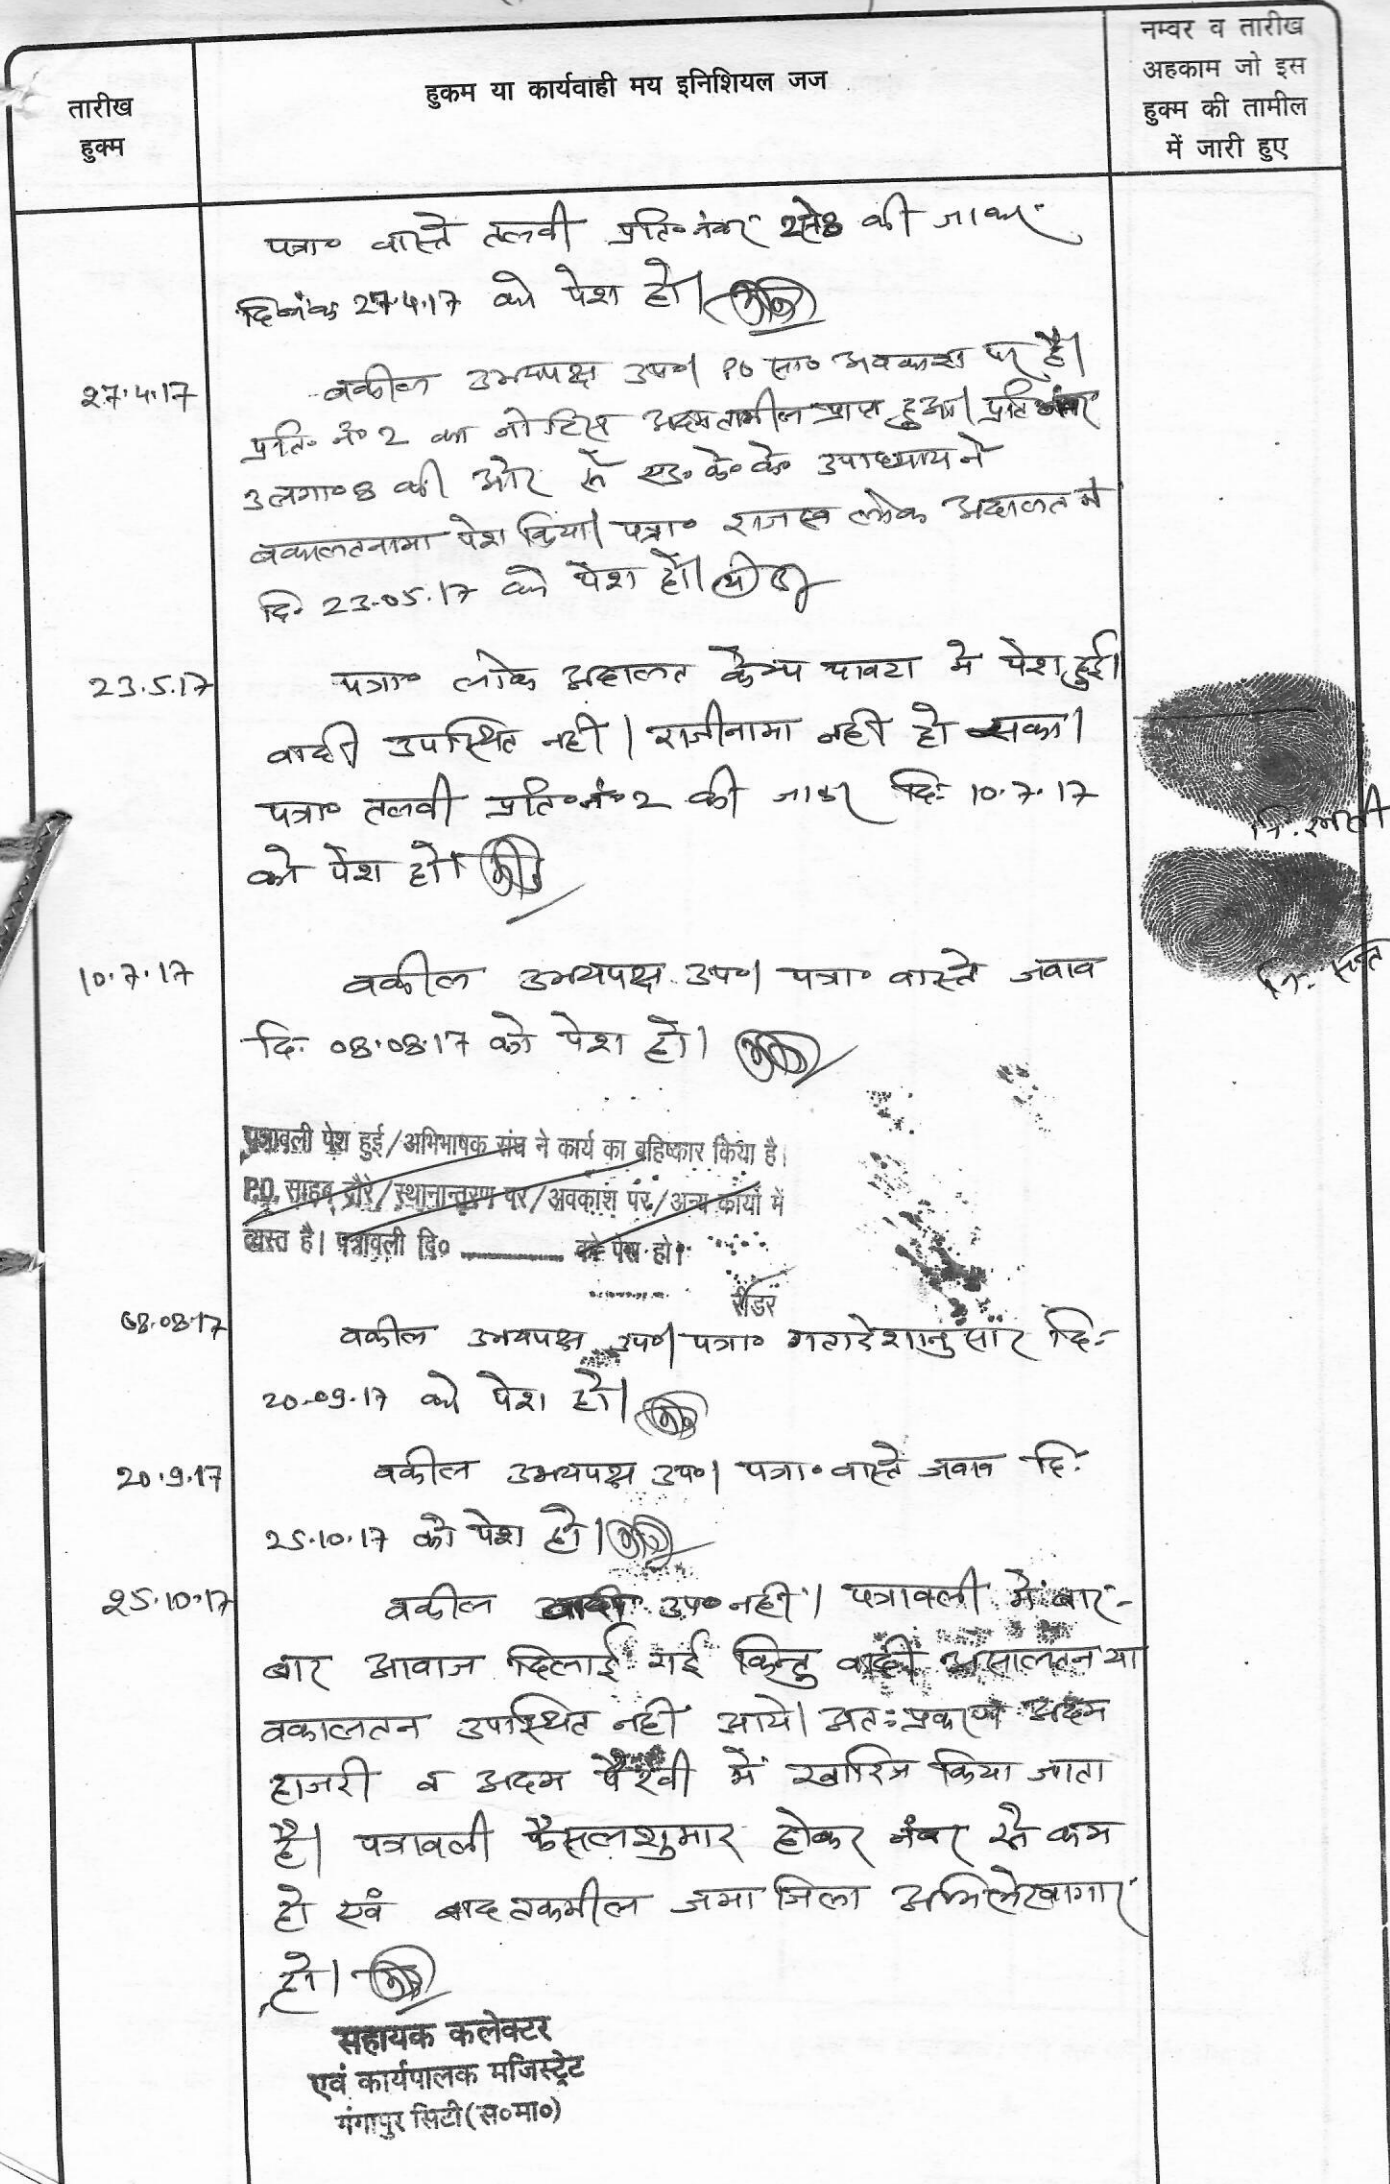 तारीख
हुक्म
हुकम या कार्यवाही मय इनिशियल जज
नम्वर व तारीख
अहकाम जो इस
हुक्म की तामील
में जारी हुए
पत्रा० वास्ते तलवी प्रति० नंबर 2से8 की जाकर
दिनांक 27.4.17 को पेश हो।
27.4.17
वकील उभयपक्ष उप०। P० सा० अवकाश पर है।
प्रति० नं० 2 का नोटिस अदमतामील प्राप्त हुआ। प्रति नंबर
3 लगा० 8 की और से एड० के० के० उपाध्याय ने
वकालतनामा पेश किया। पत्रा० राजस्व लोक अदालत में
दि. 23.05.17 को पेश हो।
23.5.17
पत्रा० लोक अदालत केम्प में पेश हुई।
वादी उपस्थित नही। राजीनामा नही हो सका।
पत्रा० तलवी प्रति० नं० 2 की जाकर दि. 10.7.17
को पेश हो।
10.7.17
वकील उभयपक्ष उप०। पत्रा० वास्ते जवाव
दि. 08.08.17 को पेश हो।
पत्रावली पेश हुई/अभिभाषक संघ ने कार्य का बहिष्कार किया है।
P.O. साहब दौरे/स्थानान्तरण पर/अवकाश पर/अन्य कार्यों में
व्यस्त है। पत्रावली दि० ________ को पेश हो।
रीडर
08.08.17
वकील उभयपक्ष उप०। पत्रा० गतादेशानुसार दि.
20.09.17 को पेश हो।
20.9.17
वकील उभयपक्ष उप०। पत्रा० वास्ते जवाव दि.
25.10.17 को पेश हो।
25.10.17
वकील वादी उप० नही। पत्रावली में बार-
बार आवाज दिलाई गई किन्तु वादी असालतन या
वकालतन उपस्थित नही आये। अतः प्रकरण अदम
हाजरी व अदम पैरवी में खारिज किया जाता
है। पत्रावली फैसलशुमार होकर नंबर से कम
हो एवं बाद तकमील जमा जिला अभिलेखागार
हो।
सहायक कलेक्टर
एवं कार्यपालक मजिस्ट्रेट
गंगापुर सिटी (स०मा०)